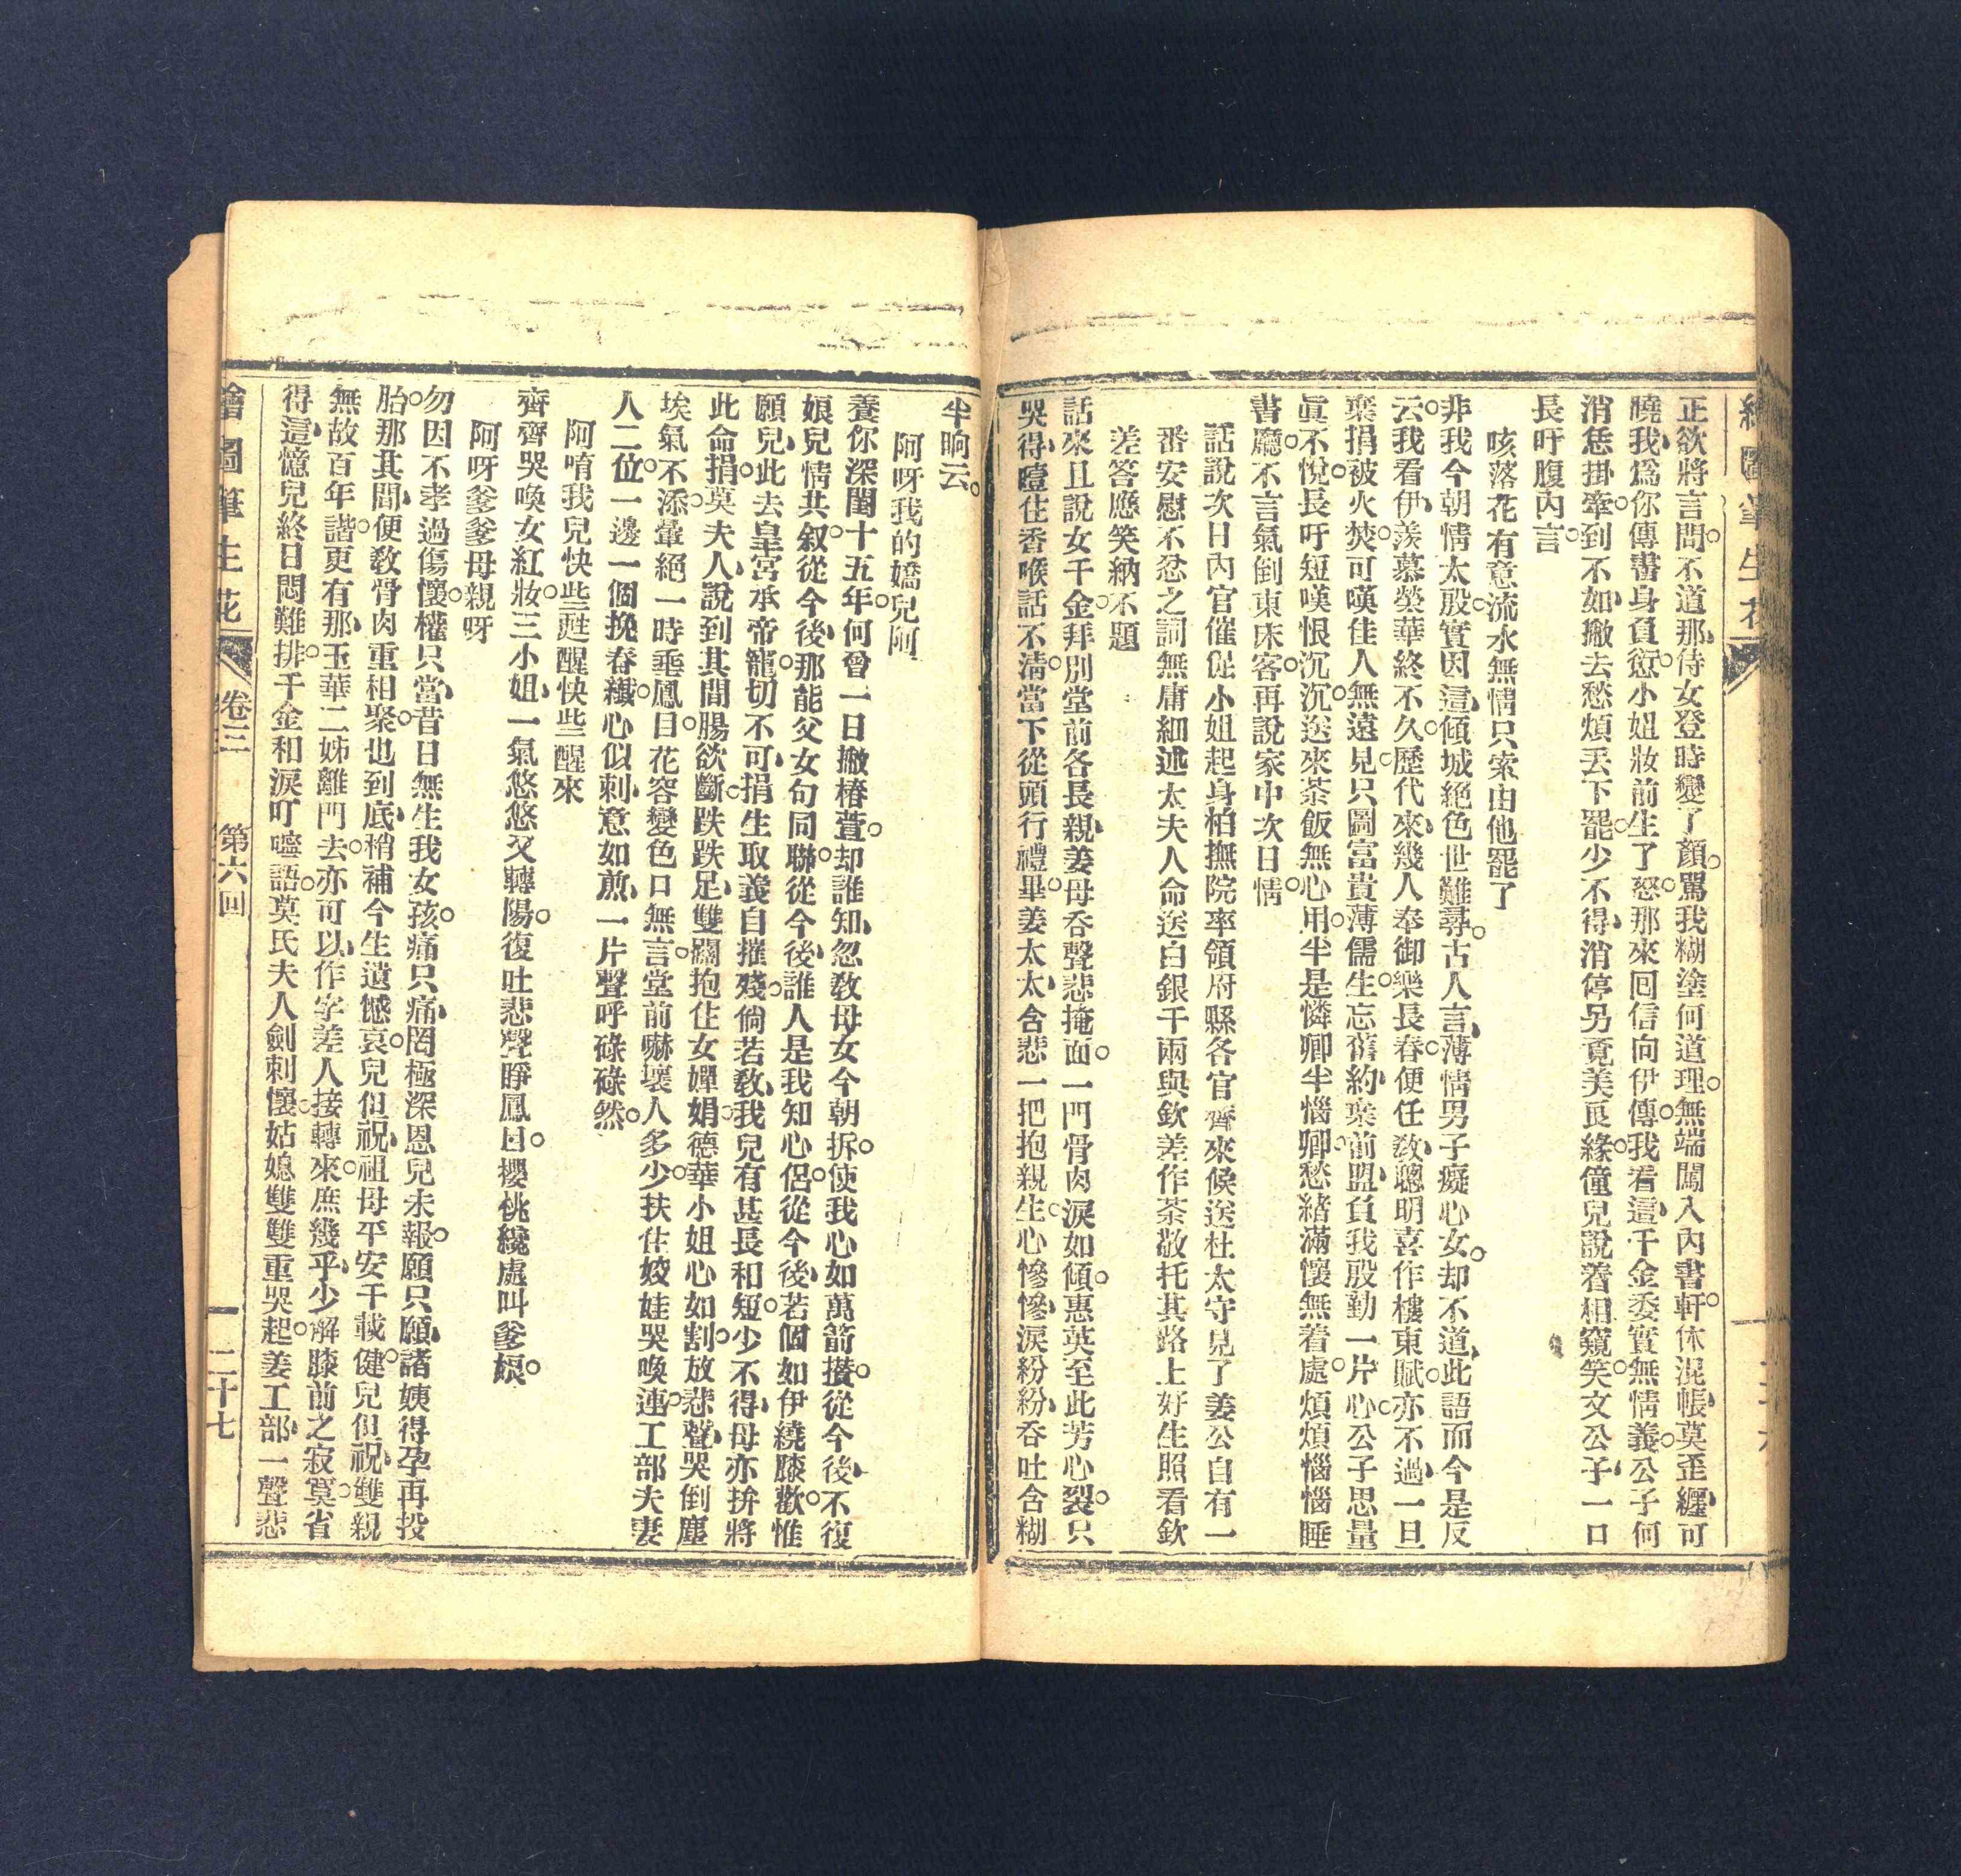 繪圖筆生花
正欲將言問。不道那、侍女登時變了顏。罵我糊塗何道理。無端闖入內書軒。休混帳、莫歪纏、可
曉我、爲你傳書身負愆。小姐妝前生了怒。那來回信向伊傳。我看這、千金委實無情義。公子何
消恁掛牽。到不如、撇去愁煩丟下罷。少不得、消停另覓美良緣。僮兒說着相窺笑。文公子、一口
長吁腹內言。
咳落花有意流水無情只索由他罷了
非我今朝情太殷。實因這、傾城絕色世難尋。古人言、薄情男子癡心女。却不道、此語而今是反
云。我看伊、羨慕榮華終不久。歷代來、幾人奉御樂長春。便任教、聰明喜作樓東賦。亦不過、一旦
棄捐被火焚。可嘆佳人無遠見。只圖富貴薄儒生。忘舊約、棄前盟、負我殷勤一片心。公子思量
眞不悅。長吁短嘆恨沉沉。送來茶飯無心用。半是憐卿半惱卿。愁緒滿懷無着處。煩煩惱惱睡
書廳。不言氣倒東床客。再說家中次日情。
話說次日內官催促小姐起身柏撫院率領府縣各官齊來候送杜太守見了姜公自有一
番安慰不忿之詞無庸細述太夫人命送白銀千兩與欽差作茶敬托其路上好生照看欽
差答應笑納不題
話來且說女千金。拜別堂前各長親。姜母吞聲悲掩面。一門骨肉淚如傾。惠英至此芳心裂。只
哭得、噎住香喉話不淸。當下從頭行禮畢。姜太太、含悲一把抱親生。心慘慘、淚紛紛、吞吐含糊
半晌云。
阿呀我的嬌兒阿
養你深閨十五年。何曾一日撇椿萱。却誰知、忽教母女今朝拆。使我心如萬箭攢。從今後、不復
娘兒情共叙。從今後、那能父女句同聯。從今後、誰人是我知心侶。從今後、若個如伊繞膝歡。惟
願兒、此去皇宮承帝寵。切不可、捐生取義自摧殘。倘若教、我兒有甚長和短。少不得、母亦拚將
此命捐。莫夫人、說到其間腸欲斷。跌跌足、雙關抱住女嬋娟。德華小姐心如割。放悲聲、哭倒塵
埃氣不添。暈絕一時垂鳳目。花容變色口無言。堂前嚇壞人多少。扶住姣娃哭喚連。工部夫妻
人二位。一邊一個挽春纖。心似刺、意如煎、一片聲呼碌碌然。
阿唷我兒快些甦醒快些醒來
齊齊哭喚女紅妝。三小姐、一氣悠悠又轉陽。復吐悲聲睜鳳目。櫻桃纔處叫爹娘。
阿呀爹爹母親呀
勿因不孝過傷懷。權只當、昔日無生我女孩。痛只痛、罔極深恩兒未報。願只願、諸姨得孕再投
胎。那其間、便教骨肉重相聚。也到底、稍補今生遺憾哀。兒但祝、祖母平安千載健。兒但祝、雙親
無故百年諧。更有那、玉華二姊離門去。亦可以、作字差人接轉來。庶幾乎、少解膝前之寂寞。省
得這、憶兒終日悶難排。千金和淚叮嚀語。莫氏夫人劍刺懷。姑媳雙雙重哭起。姜工部、一聲悲
繪圖筆生花 卷三 第六回 二十七